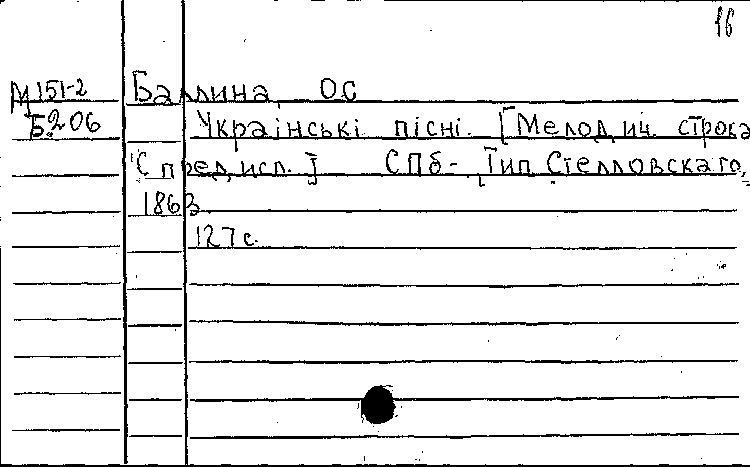 16
М151-2 Баллина, ОС
Б206 Українські пісні. [Мелодич. строка
С предисл.] СПб- Тип Стелловскаго,
1863
127 с.